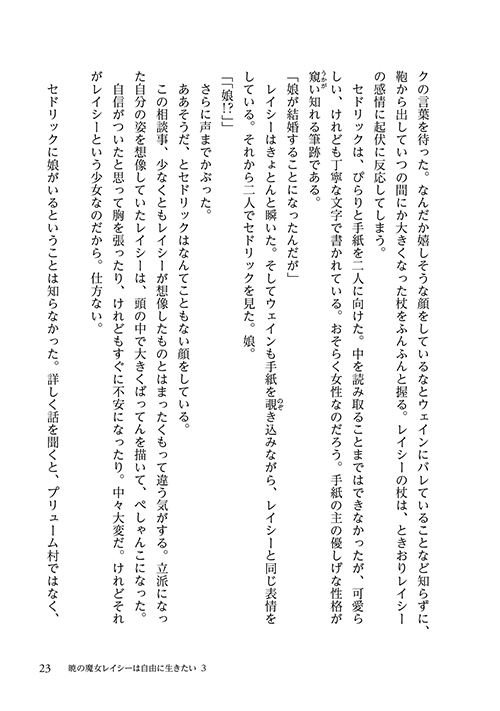 クの言葉を待った。なんだか嬉しそうな顔をしているなとウェインにバレていることなど知らずに、
鞄から出していつの間にか大きくなった杖をふんふんと握る。レイシーの杖は、ときおりレイシー
の感情に起伏に反応してしまう。
セドリックは、ぴらりと手紙を二人に向けた。中を読み取ることまではできなかったが、可愛ら
しい、けれども丁寧な文字で書かれている。おそらく女性なのだろう。手紙の主の優しげな性格が
窺い知れる筆跡である。
うかが
「娘が結婚することになったんだが」
レイシーはきょとんと瞬いた。そしてウェインも手紙を覗き込みながら、レイシーと同じ表情を
のぞ
している。それから二人でセドリックを見た。娘。
「「娘!?」」
さらに声までかぶった。
ああそうだ、とセドリックはなんてこともない顔をしている。
この相談事、少なくともレイシーが想像したものとはまったくもって違う気がする。立派になっ
た自分の姿を想像していたレイシーは、頭の中で大きくばってんを描いて、ぺしゃんこになった。
自信がついたと思って胸を張ったり、けれどもすぐに不安になったり。中々大変だ。けれどそれ
がレイシーという少女なのだから。仕方ない。
セドリックに娘がいるということは知らなかった。詳しく話を聞くと、プリューム村ではなく、
23 暁の魔女レイシーは自由に生きたい 3